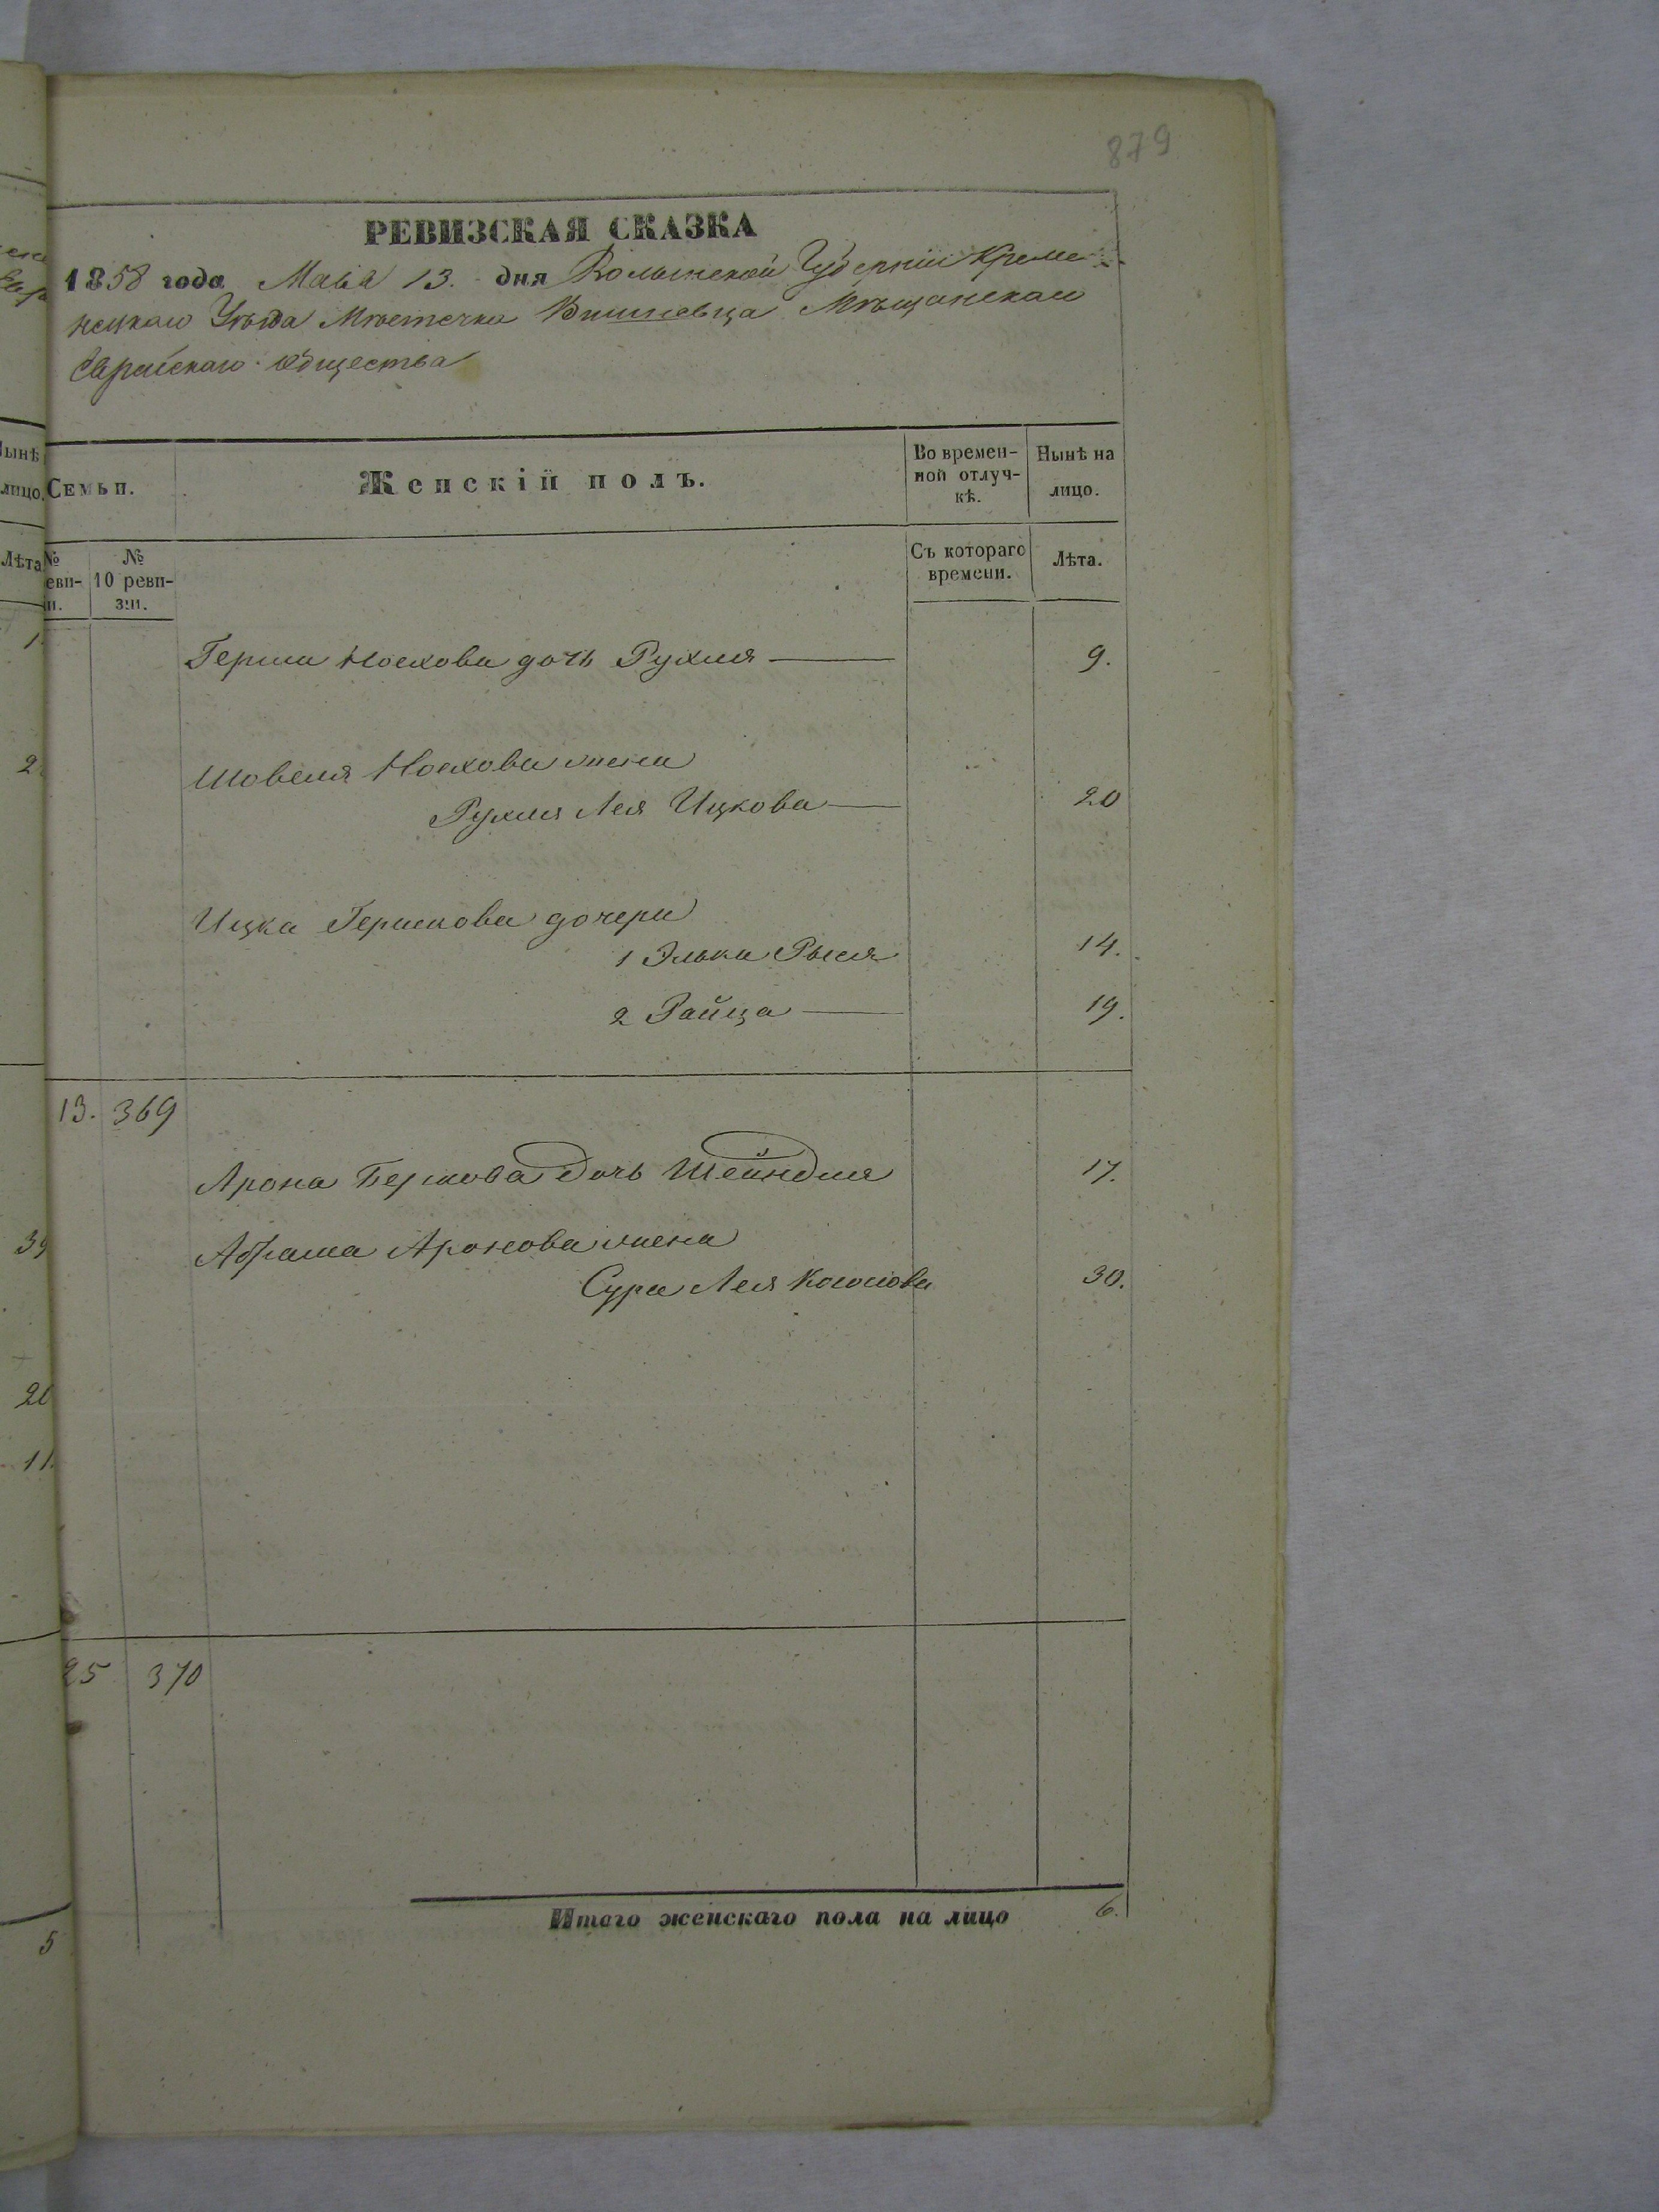 879
РЕВИЗСКАЯ СКАЗКА
1858 года Маія 13. дня Волынской Губерніи Креме-
нецкаго Уѣзда Мѣстечка Вишневца Мѣщанскаго
Еврейскаго Общества
Семьи.
Женскій полъ.
Во времен-
ной отлуч-
кѣ.
Нынѣ на
лицо.
№
еви-
и.
№
10 реви-
зіи.
Съ котораго
времени.
Лѣта.
Герша Ноехова дочь Рухля 9.
Шовеля Ноехова жена
Рухля Лея Ицкова 20
Ицка Гершкова дочери
1 Элька Рыся 14.
2 Райца 19.
13. 369
Арона Беркова дочь Шейндля 17.
Абрама Аронова жена
Сура Лея 30.
25 370
Итого женскаго пола на лицо 6.
Нынѣ
лицо.
Лѣта
1.
2
39
20
11.
5